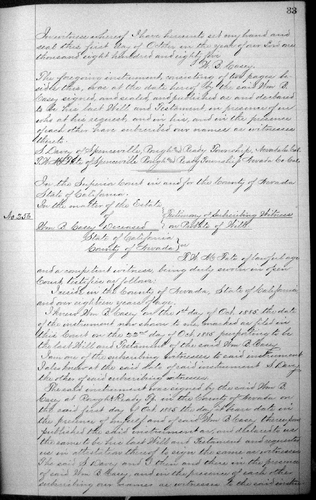 33
In witness whereof I have hereunto set my hand and
seal this first day of October in the year of our Lord one
thousand eight hundred and eighty five
W. B. Casey
The foregoing instrument, consisting of two pages be
side this, was at the date hereof by the said Wm B.
Casey signed and sealed and published as and declared
to be his last Will and Testament, in presence of us
who at his request, and in his, and in the presence
of each other have subscribed our names as witnesses
thereto.
S. Davy of Spenceville, Rough and Ready Township, Nevada Co Cal
of Spenceville Rough & Ready Township Nevada Co. Cal
In the Superior Court in and for the County of Nevada
State of California.
In the matter of the Estate
of
No 256
Wm B. Casey Deceased
Testimony of Subscribing Witness
on Probate of Will
State of California
County of Nevada
of lawful age
and a competent witness, being duly sworn in open
Court testifies as follows:
I reside in the County of Nevada, State of California
and am over eighteen years of age.
I knew Wm B. Casey on the 1st day of Oct. 1885, the date
of the instrument now shown to me marked as filed in
this Court on the 22nd day of Oct 1885, purporting to be
the last Will and Testament of the said Wm B. Casey
I am one of the subscribing witnesses to said instrument
I also knew at the said date of said instrument S. Davy
the other of said subscribing witnesses.
The said instrument was signed by the said Wm B.
Casey at Rough & Ready Tp in the County of Nevada on
the said first day of Oct. 1885 the day it bears date, in
the presence of myself and of said
published the said instrument as, and declared to us
the same to be his last Will and Testament and requested
us in attestation thereof to sign the same as witnesses
The said S. Davy and I then and there in the presence
of said Wm B. Casey, and in the presence of each other
subscribed our names as witnesses to the said